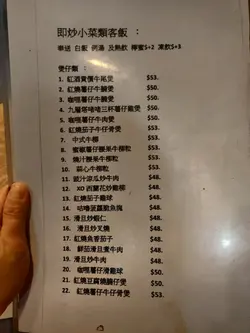 即炒小菜類客飯：
單送 白飯 例湯 及熱飲 檸蜜$+2 凍飲$+3
煲仔飯：
1. 紅酒賣價牛尾煲 $53.
2. 紅燒薯仔牛腩煲 $50.
3. 咖喱薯仔牛腩煲 $50.
4. 九層塔啫啫三杯薯仔雞煲 $50.
5. 咖喱薯仔牛肉煲 $50.
6. 紅燒茄子牛仔骨煲 $53.
7. 中式牛柳 $53.
8. 蜜椒薯仔腰果牛柳粒 $53.
9. 燒汁腰果牛柳粒 $53.
10. 蒜心牛柳粒 $53.
11. 豉汁涼瓜炒牛肉 $48.
12. XO 西蘭花炒雞柳 $48.
13. 紅燒茄子雞球 $48.
14. 咕嚕菠蘿脆魚塊 $48.
15. 滑旦炒蝦仁 $48.
16. 滑旦炒叉燒 $48.
17. 紅燒魚香茄子 $48.
18. 鮮茄滑旦煮牛肉 $48.
19. 滑旦炒牛肉 $48.
20. 咖喱薯仔滑雞球 $50.
21. 紅燒豆腐薯仔煲 $50.
22. 紅燒薯仔牛仔骨煲 $53.